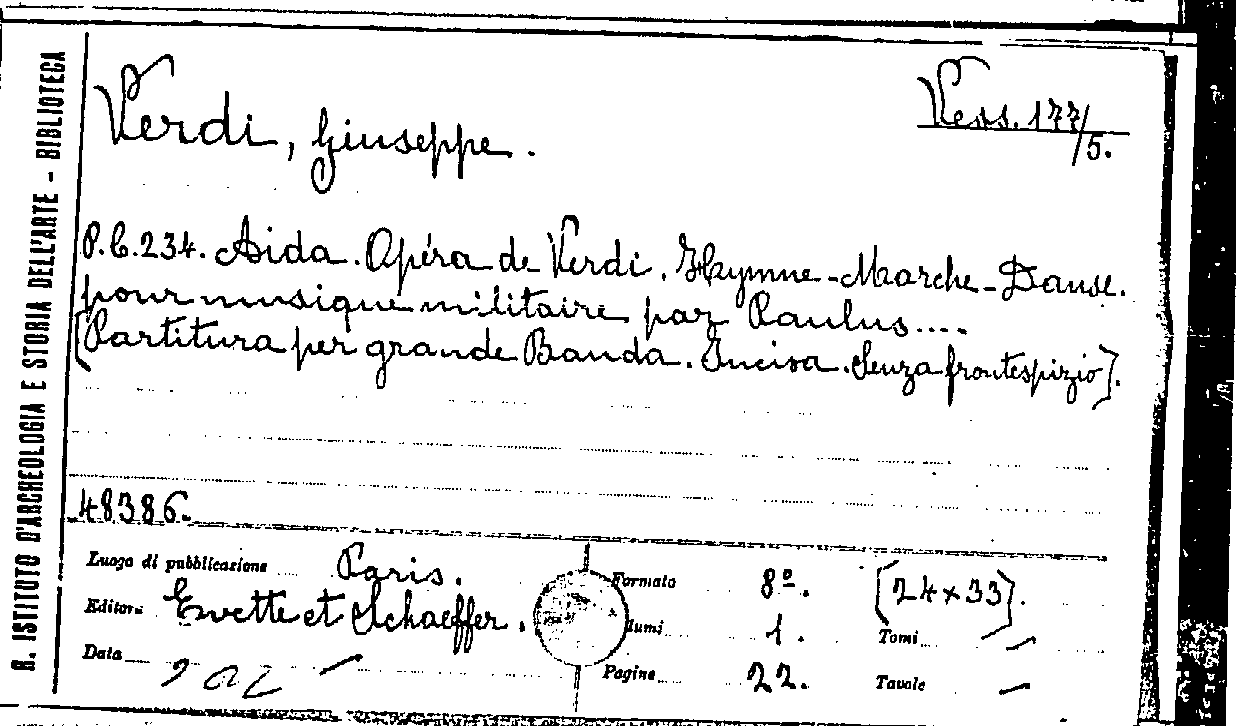 R. ISTITUTO D'ARCHEOLOGIA E STORIA DELL'ARTE - BIBLIOTECA
Verdi, Giuseppe.
Vess. 177/5.
P.C.234. Aida. Opéra de Verdi. Haymne-Marche-Danse.
pour musique militaire par Paulus....
[Partitura per grande Banda. Incisa. Senza frontespizio].
48386.
Luogo di pubblicazione Paris.
Editore Evette et Schaeffer.
Data
Formato 8º. [24×33].
lumi 1. Tomi —
Pagine 22. Tavole —